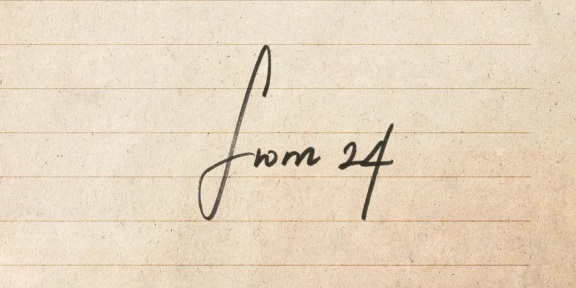 from 24